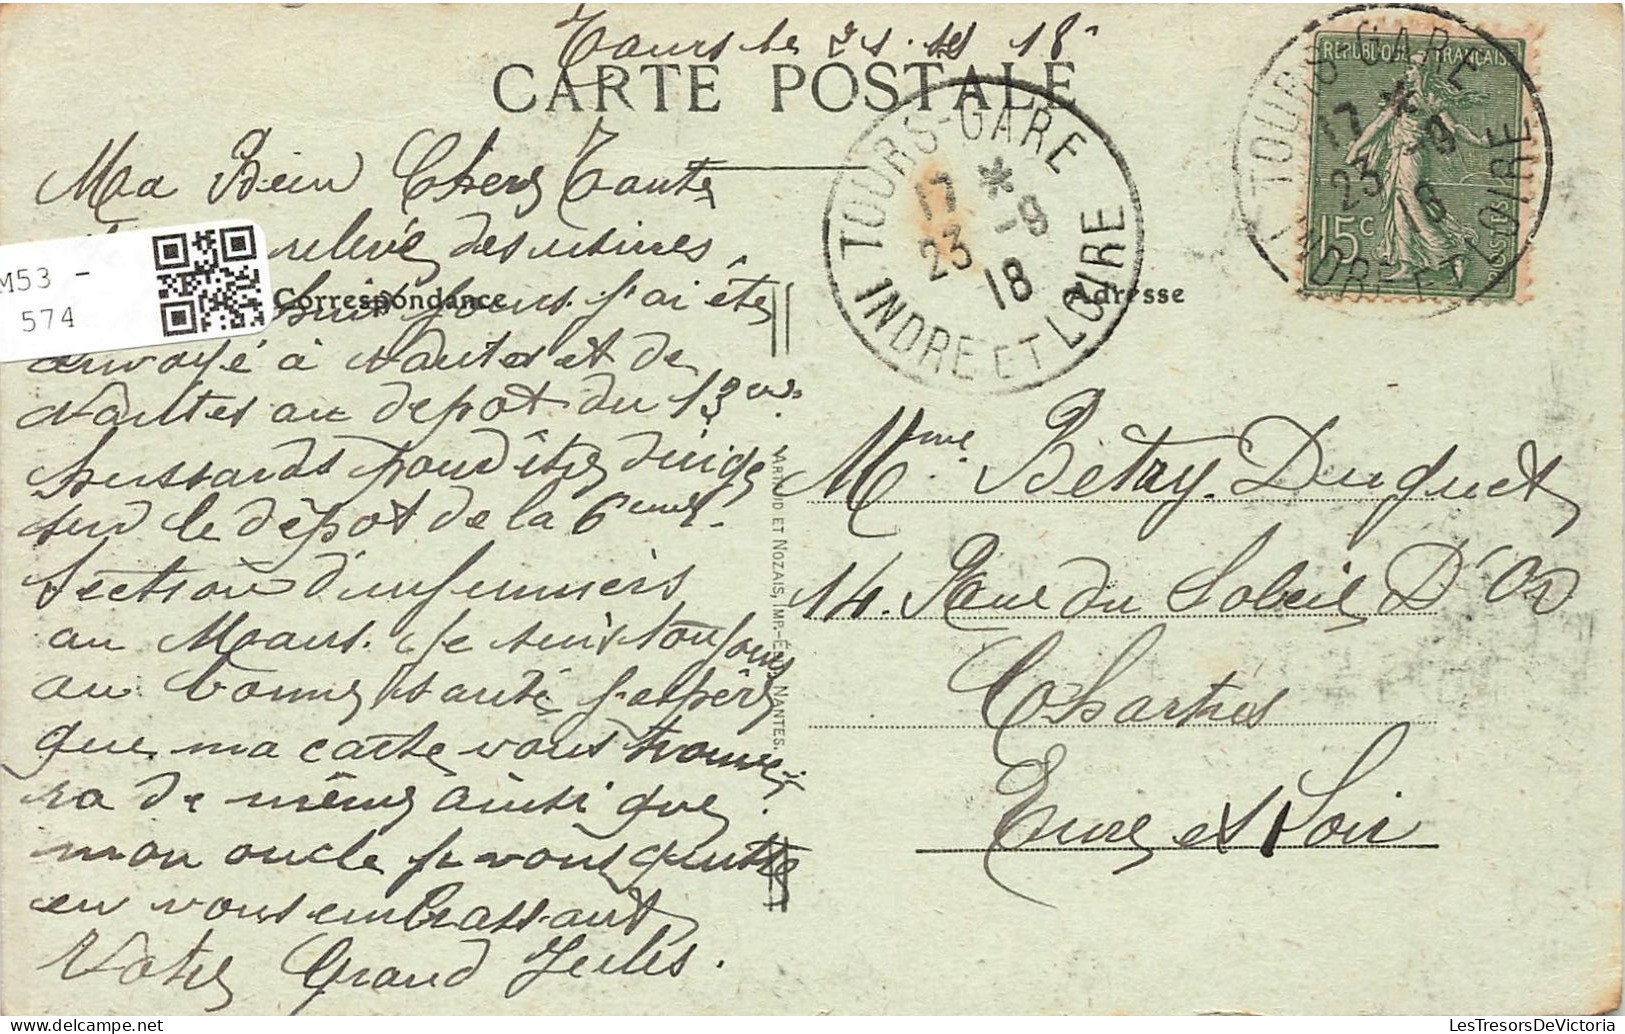 Tours le 23. 18
CARTE POSTALE
Ma Bien Chere Tante
relevé des usines
huit jours. j'ai êté
envoyé à Nantes et de
Nantes au depot du 13
hussards pour être dirigé
sur le dêpot de la 6eme
Section d'infirmiers
au Mans. Je suis toujours
en bonne santé j'espêre
que ma carte vous trouve-
ra de même ainsi que
mon oncle je vous quitte
en vous embrassant
Votre Grand Jules.
Correspondance
Adresse
ARNAUD ET NOZAIS, IMP-ÉD. NANTES.
Mme Bétry. Duquet
14. Rue du Soleil D'Or
Chartres
Eure et Loir
TOURS-GARE
17 * -9
23 18
INDRE ET LOIRE
REPUBLIQUE FRANÇAISE
15c
POSTES
TOURS-GARE
17 * -9
23 18
INDRE ET LOIRE
M53 -
574
LesTresorsDeVictoria